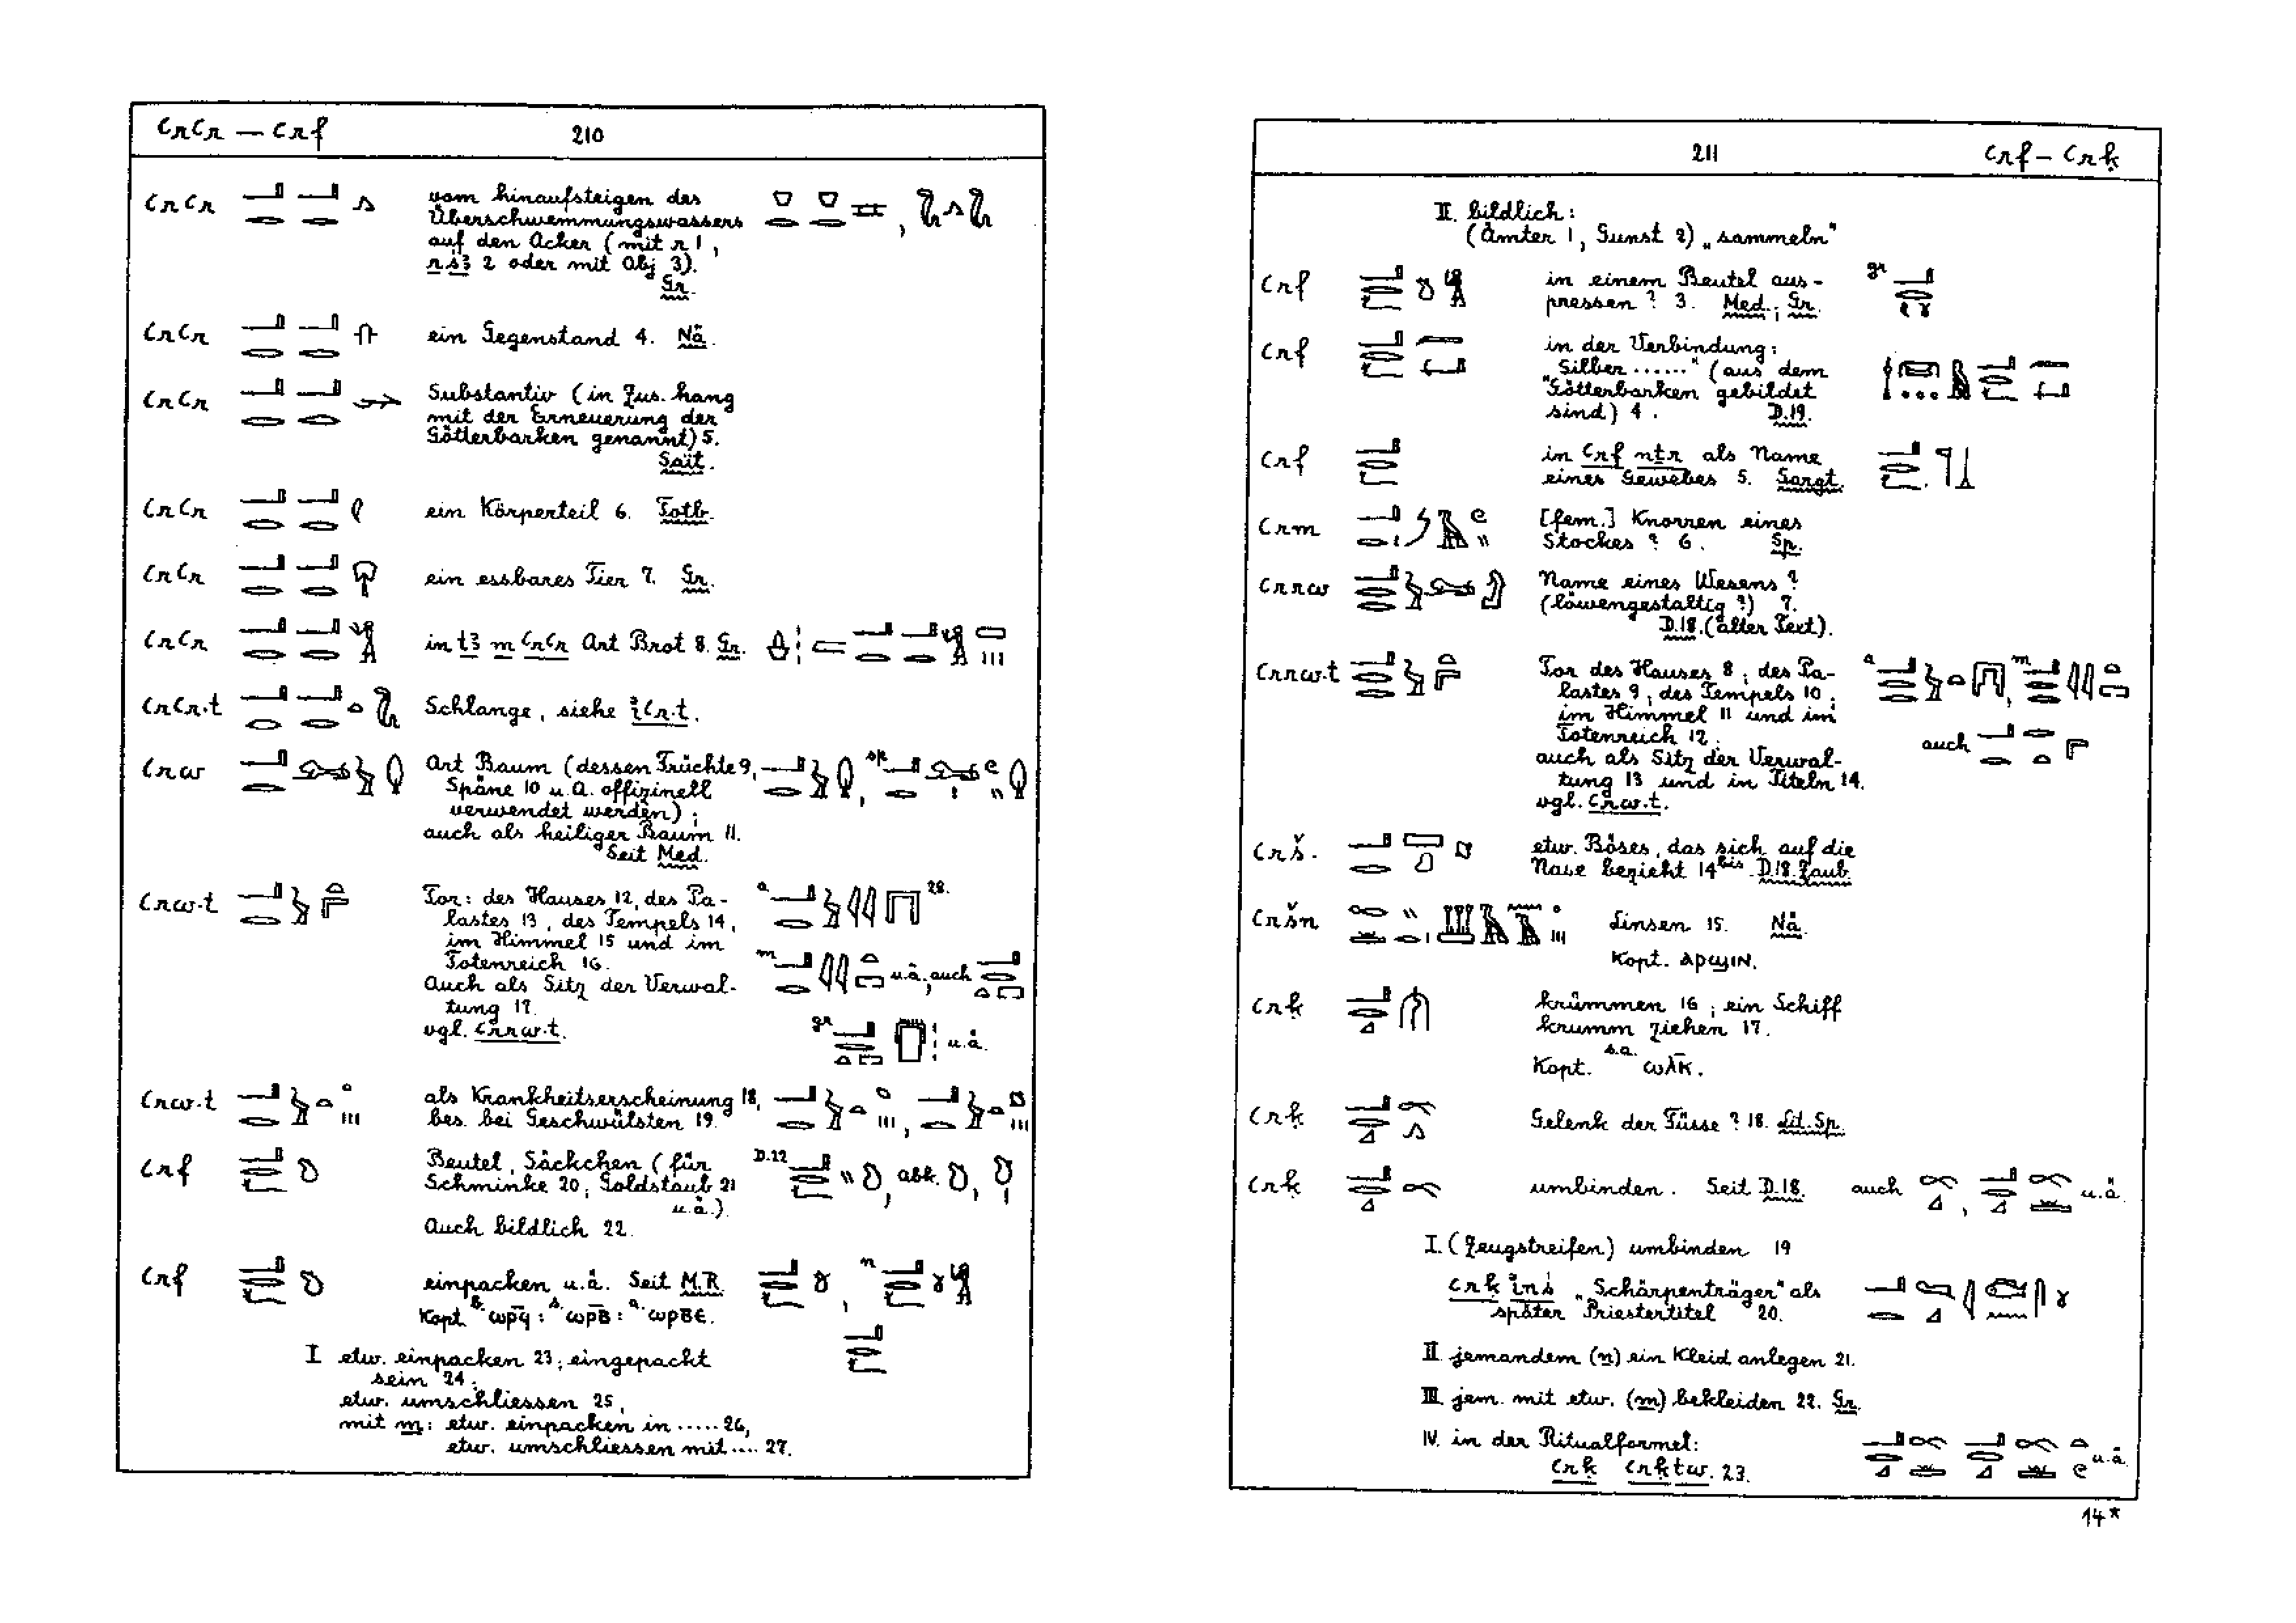 ꜥrꜥr — ꜥrf 210
ꜥrꜥr vom hinaufsteigen des
Überschwemmungswassers
auf den Acker (mit r 1,
r sꜣ 2 oder mit Obj 3).
Gr.
ꜥrꜥr ein Gegenstand 4. Nä.
ꜥrꜥr Substantiv (in Zus.hang
mit der Erneuerung der
Götterbarken genannt) 5.
Sait.
ꜥrꜥr ein Körperteil 6. Totb.
ꜥrꜥr ein essbares Tier 7. Gr.
ꜥrꜥr in tꜣ m ꜥrꜥr Art Brot 8. Gr.
ꜥrꜥr.t Schlange, siehe iꜥr.t.
ꜥrw Art Baum (dessen Früchte 9, sp
Späne 10 u.a. offizinell
verwendet werden);
auch als heiliger Baum 11.
Seit Med.
ꜥrw.t Tor: des Hauses 12, des Pa- a 28.
lastes 13, des Tempels 14,
im Himmel 15 und im
Totenreich 16. m u.ä., auch
Auch als Sitz der Verwal-
tung 17.
vgl. ꜥrrw.t. gr u.ä.
ꜥrw.t als Krankheitserscheinung 18,
bes. bei Geschwülsten 19.
ꜥrf Beutel, Säckchen (für D.22 abk.
Schminke 20; Goldstaub 21
u.ä.).
Auch bildlich 22.
ꜥrf einpacken u.ä. Seit M.R. n
Kopt. b. ⲱⲣϥ̅ : s. ⲱⲣⲃ̅ : a. ⲱⲣⲃⲉ.
I etw. einpacken 23; eingepackt
sein 24;
etw. umschliessen 25,
mit m: etw. einpacken in ..... 26,
etw. umschliessen mit .... 27.
211 ꜥrf — ꜥrḳ
II. bildlich:
(Ämter 1, Gunst 2) „sammeln"
ꜥrf in einem Beutel aus- gr
pressen? 3. Med.; Gr.
ꜥrf in der Verbindung:
„Silber ......" (aus dem
Götterbarken gebildet
sind) 4. D.19.
ꜥrf in ꜥrf nṯr als Name
eines Gewebes 5. Sargt.
ꜥrm [fem.] Knorren eines
Stockes? 6. Sp.
ꜥrrw Name eines Wesens?
(löwengestaltig?) 7.
D.18. (alter Text).
ꜥrrw.t Tor des Hauses 8; des Pa- a m
lastes 9; des Tempels 10;
im Himmel 11 und im
Totenreich 12. auch
auch als Sitz der Verwal-
tung 13 und in Titeln 14.
vgl. ꜥrw.t.
ꜥrš. etw. Böses, das sich auf die
Nase bezieht 14bis. D.18. Zaub.
ꜥršn Linsen 15. Nä.
Kopt. ⲁⲣϣⲓⲛ.
ꜥrḳ krümmen 16; ein Schiff
krumm ziehen 17.
Kopt. s.a. ⲱⲗⲕ̅.
ꜥrḳ Gelenk der Füsse? 18. Lit. Sp.
ꜥrḳ umbinden. Seit D.18. auch u.ä.
I. (Zeugstreifen) umbinden 19
ꜥrḳ ins „Schärpenträger" als
später Priestertitel 20.
II jemandem (n) ein Kleid anlegen 21.
III jem. mit etw. (m) bekleiden 22. Gr.
IV. in der Ritualformel:
ꜥrḳ ꜥrḳtw. 23. u.ä.
14*